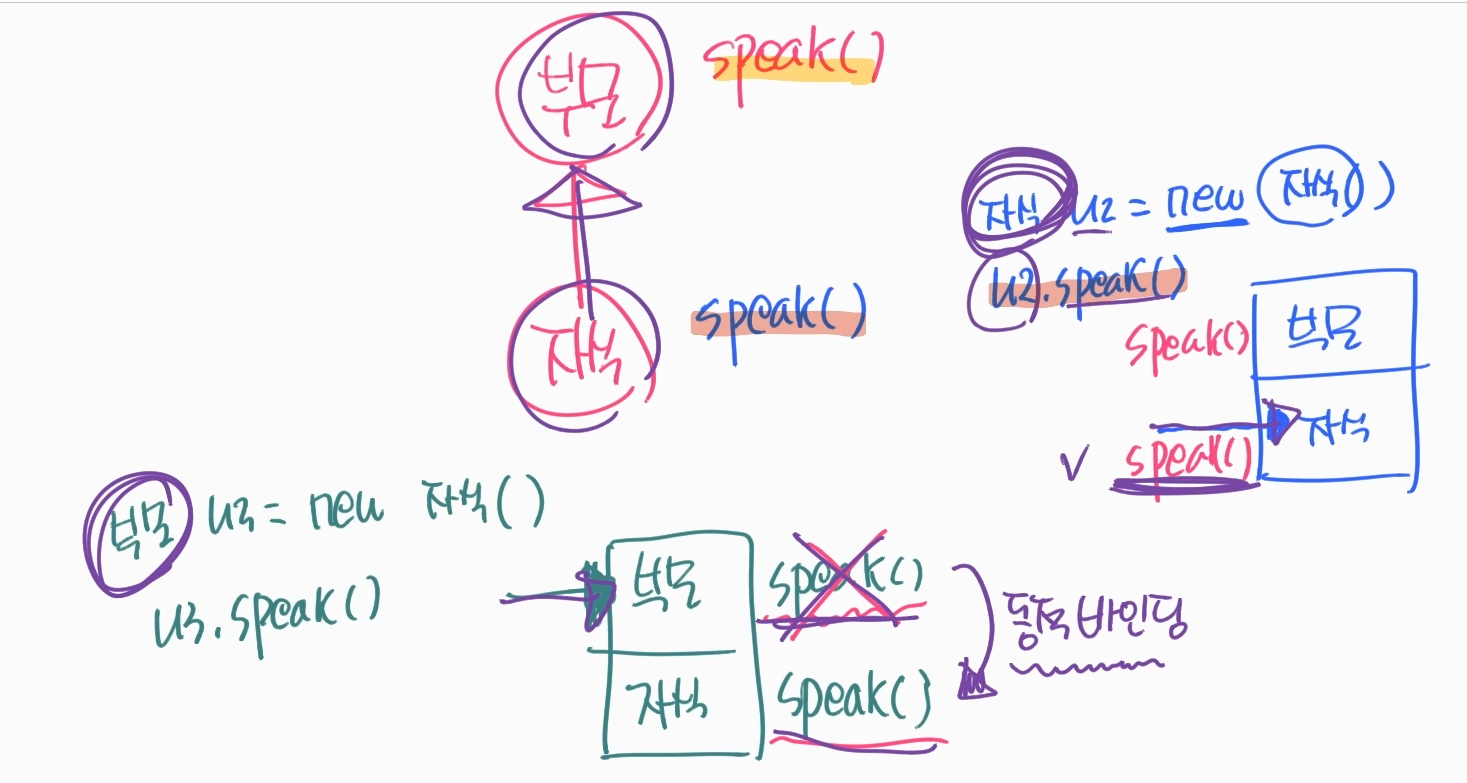 부모 speak()
자식 speak()
자식 u2 = new 자식()
u2.speak()
speak() 부모
v speak() 자식
부모 u3 = new 자식()
u3.speak()
부모 speak()
자식 speak()
동적 바인딩